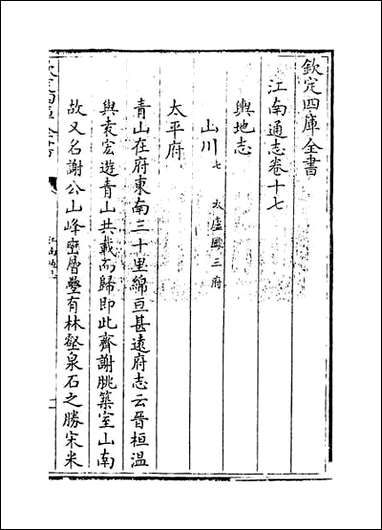 欽定四庫全書
江南通志卷十七
輿地志
山川 七 太廬鳳三府
太平府
青山在府東南三十里綿亘甚遠府志云晉桓温
與袁宏遊青山共載而歸即此齊謝朓築室山南
故又名謝公山峰巒層疊有林壑泉石之勝宋米